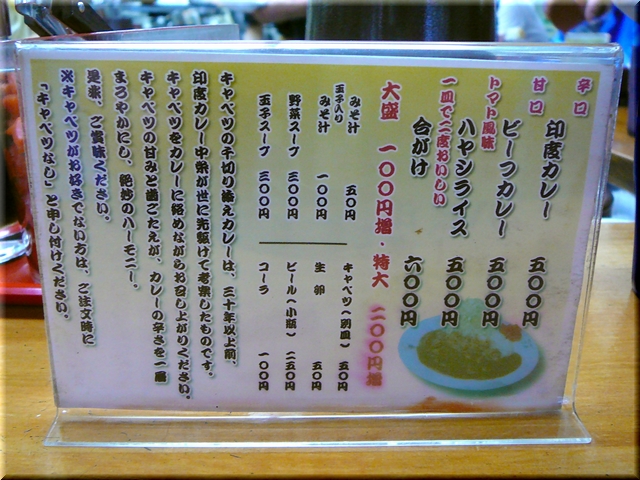 辛口 印度カレー 五〇〇円
甘口 ビーフカレー 五〇〇円
トマト風味 ハヤシライス 五〇〇円
一皿で二度おいしい 合がけ 六〇〇円
大盛 一〇〇円増・特大 二〇〇円増
みそ汁 五〇円
玉子入りみそ汁 一〇〇円
野菜スープ 三〇〇円
玉子スープ 三〇〇円
キャベツ(別皿) 五〇円
生卵 五〇円
ビール(小瓶) 二五〇円
コーラ 一〇〇円
キャベツの千切り添えカレーは、三十年以上前、
印度カレー中栄が世に先駆けて考案したものです。
キャベツをカレーに絡めながらお召し上がりください。
キャベツの甘みと歯ごたえが、カレーの辛さを一層
まろやかにし、絶妙のハーモニー。
是非、ご賞味ください。
※キャベツがお好きでない方は、ご注文時に
「キャベツなし」と申し付けください。